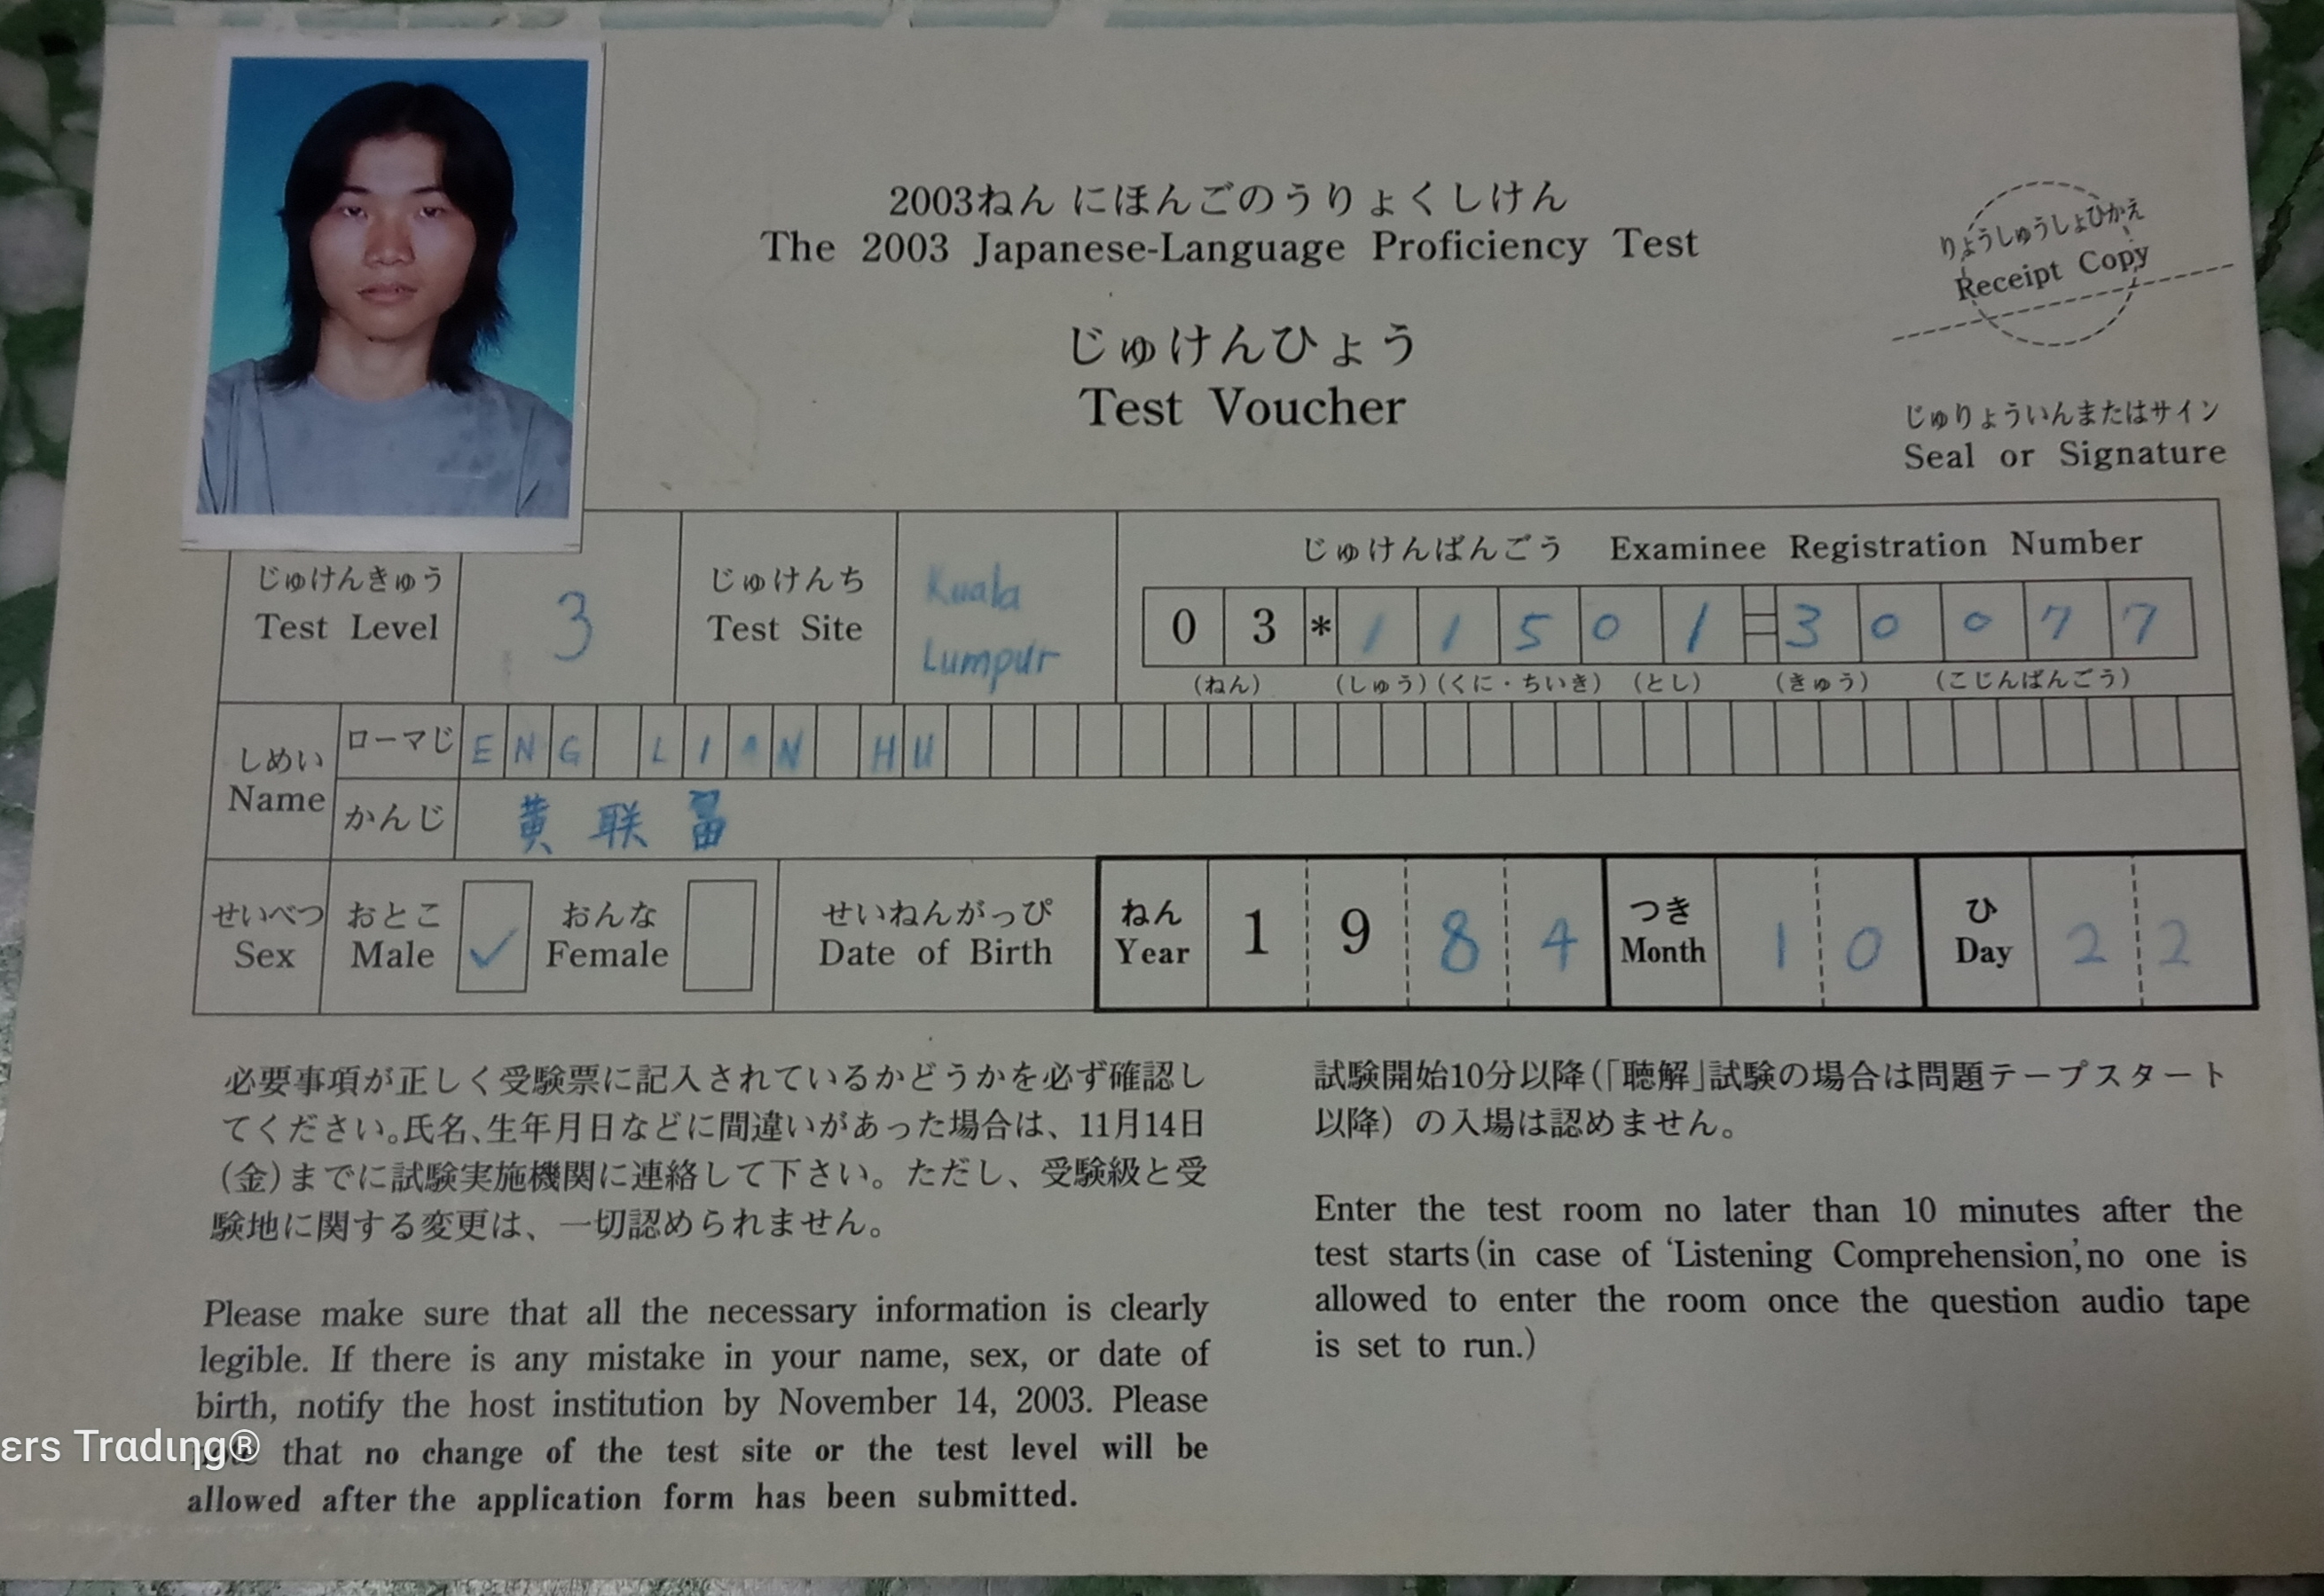 2003ねん にほんごのうりょくしけん
The 2003 Japanese-Language Proficiency Test
りょうしゅうしょひかえ
Receipt Copy
じゅけんひょう
Test Voucher
じゅりょういんまたはサイン
Seal or Signature
じゅけんきゅう
Test Level
3
じゅけんち
Test Site
Kuala
Lumpur
じゅけんばんごう Examinee Registration Number
03*11501=30077
(ねん) (しゅう) (くに・ちいき) (とし) (きゅう) (こじんばんごう)
しめい
Name
ローマじ
ENG LIAN HU
かんじ
黄联
せいべつ
Sex
おとこ
Male
✓
おんな
Female
せいねんがっぴ
Date of Birth
ねん
Year
1984
つき
Month
10
ひ
Day
22
必要事項が正しく受験票に記入されているかどうかを必ず確認し
てください。氏名、生年月日などに間違いがあった場合は、11月14日
(金)までに試験実施機関に連絡して下さい。ただし、受験級と受
験地に関する変更は、一切認められません。
Please make sure that all the necessary information is clearly
legible. If there is any mistake in your name, sex, or date of
birth, notify the host institution by November 14, 2003. Please
that no change of the test site or the test level will be
allowed after the application form has been submitted.
試験開始10分以降(「聴解」試験の場合は問題テープスタート
以降) の入場は認めません。
Enter the test room no later than 10 minutes after the
test starts(in case of ‘Listening Comprehension’,no one is
allowed to enter the room once the question audio tape
is set to run.)
εrs Tradıηg®